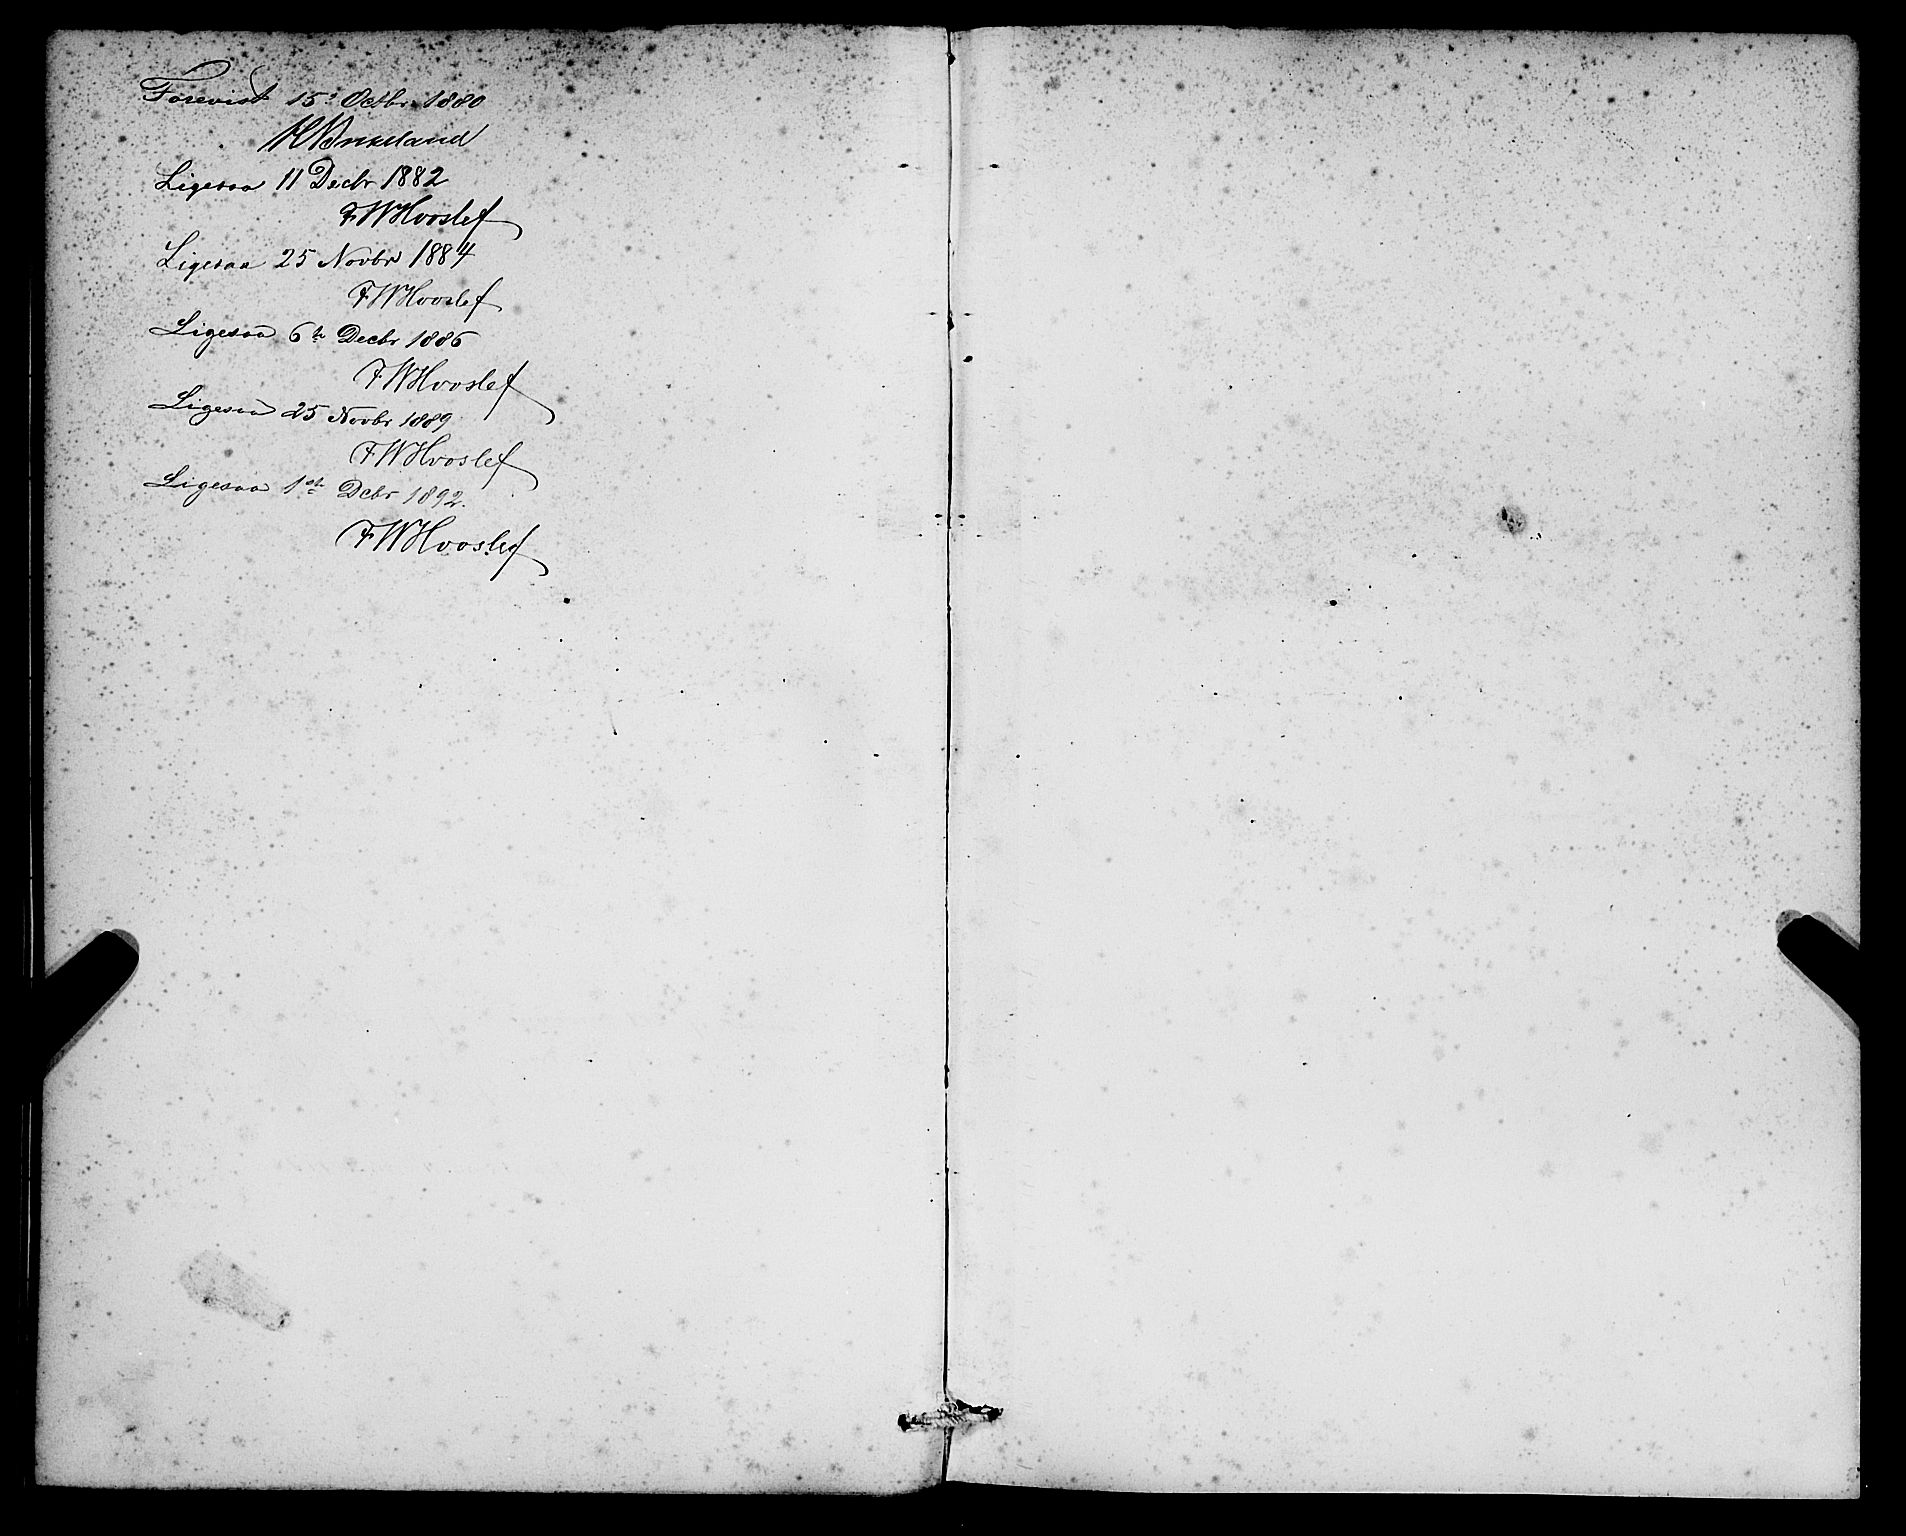 Forevist 15d Octbr. 1880
M Birkeland
Ligesaa 11 Decbr 1882
FWHvoslef
Ligesaa 25 Novbr 1884
FWHvoslef
Ligesaa 6te Decbr 1886
FWHvoslef
Ligesaa 25 Novbr 1889
FWHvoslef
Ligesaa 1ste Dcbr 1892.
FWHvoslef